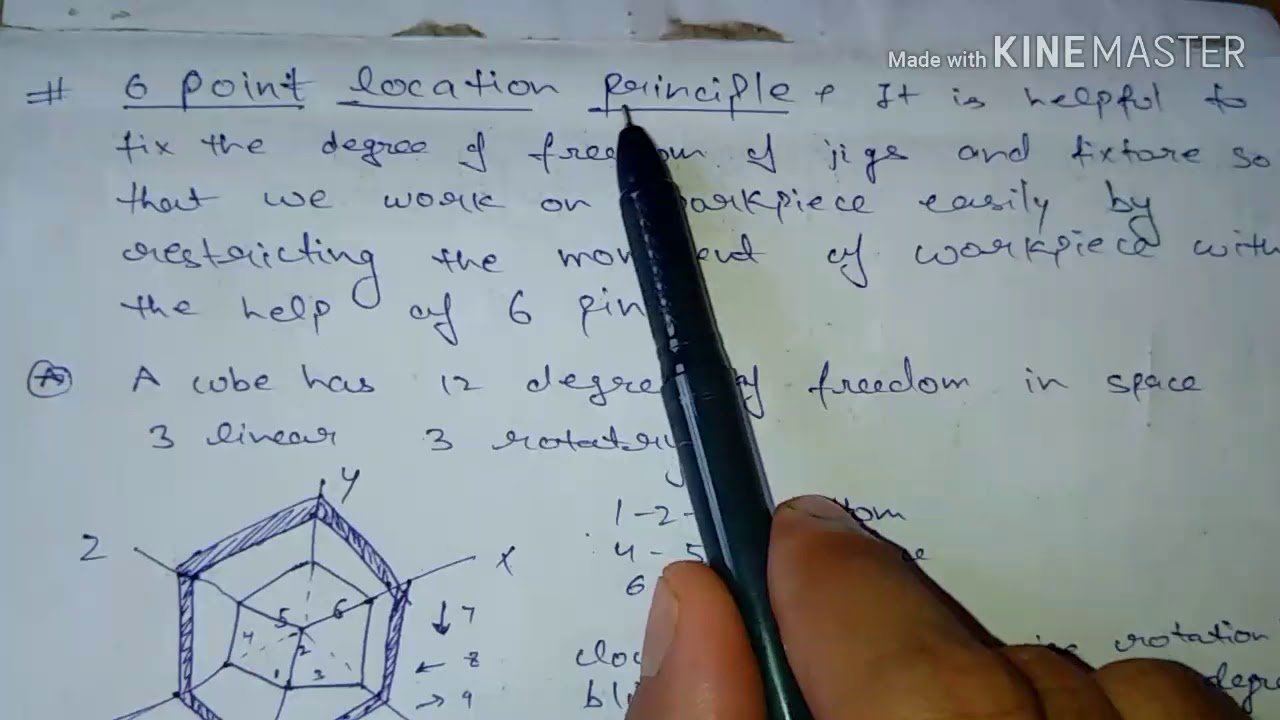 Made with KINEMASTER
# 6 point location principle : It is helpful to
fix the degree of freedom of jigs and fixture so
that we work on workpiece easily by
restricting the movement of workpiece with
the help of 6 pin
A A cube has 12 degree of freedom in space
3 linear 3 rotatory
Y
1-2-
Z X
4-5
6
5 6
7
4 2
rotation
8
1 3
degre
9